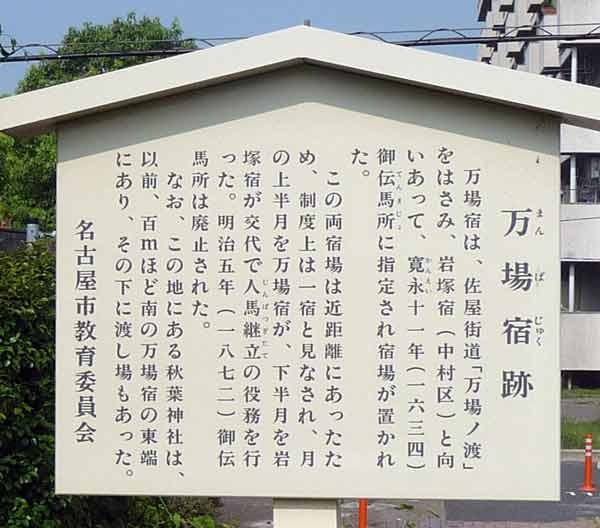 万場宿跡
まんばじゅく
万場宿は、佐屋街道「万場ノ渡」
をはさみ、岩塚宿（中村区）と向
いあって、寛永十一年（一六三四）
かんえい
御伝馬所に指定され宿場が置かれ
てんましょ
た。
この両宿場は近距離にあったた
め、制度上は一宿と見なされ、月
の上半月を万場宿が、下半月を岩
塚宿が交代で人馬継立の役務を行
じんばつぎたて
った。明治五年（一八七二）御伝
馬所は廃止された。
なお、この地にある秋葉神社は、
以前、百mほど南の万場宿の東端
にあり、その下に渡し場もあった。
名古屋市教育委員会